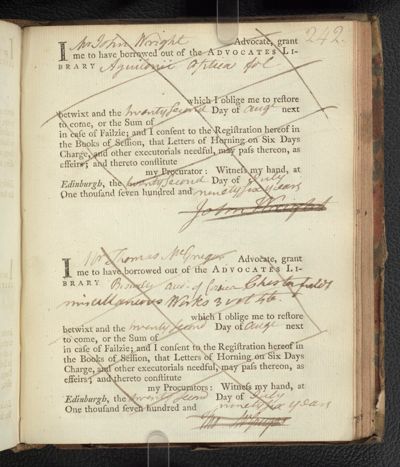 242.
I Mr John Wright Advocate, grant
me to have borrowed out of the ADVOCATES LI-
BRARY Aguilonii Optica fol
which I oblige me to reſtore
betwixt and the twenty Second Day of Augt next
to come, or the Sum of
in caſe of Failzie; and I conſent to the Regiſtration hereof in
the Books of Seſſion, that Letters of Horning on Six Days
Charge, and other executorials needful, may paſs thereon, as
effeirs; and thereto conſtitute
my Procurator: Witneſs my hand, at
Edinburgh, the twenty Second Day of July
One thouſand ſeven hundred and ninety six years
John Wright
I Mr Thomas McGrugar Advocate, grant
me to have borrowed out of the ADVOCATES LI-
BRARY Chesterfield's
miscellaneous Works 3 vol 4to.
which I oblige me to reſtore
betwixt and the twenty Second Day of Augt next
to come, or the Sum of
in caſe of Failzie; and I conſent to the Regiſtration hereof in
the Books of Seſſion, that Letters of Horning on Six Days
Charge, and other executorials needful, may paſs thereon, as
effeirs; and thereto conſtitute
my Procurators: Witneſs my hand, at
Edinburgh, the twenty Second Day of July
One thouſand ſeven hundred and ninety six years
Tho McGrugar